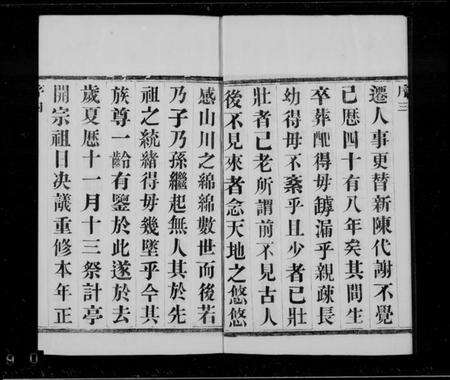 序三
遷人事更替新陳代謝不覺
已歷四十有八年矣其間生
卒葬配得毋罅漏乎親疎長
幼得毋不紊乎且少者已壯
壯者已老所謂前不見古人
後不見來者念天地之悠悠
感山川之綿綿數世而後若
乃子乃孫繼起無人其於先
祖之統緒得毋幾墜乎今其
族尊一齡有鑒於此遂於去
歲夏歷十一月十三祭計亭
開宗祖目決議重修本年正
序四
9 0